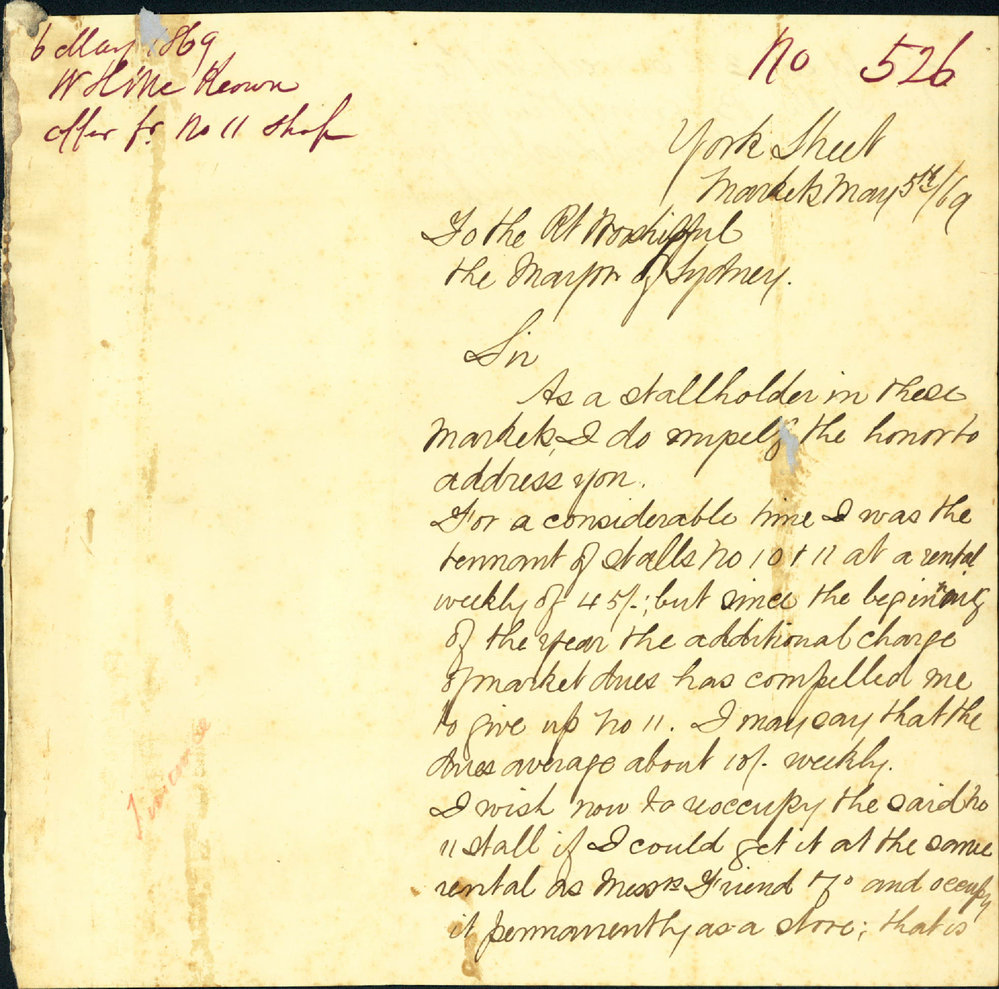 6 May 1869
W H McKeown
offer fr. No 11 Shop
No 526
York Street
Markets May 5th/69
To the Rt Worshipful
the Mayor of Sydney.
Sir
As a stallholder in these
Markets, I do myself the honor to
address you.
For a considerable time I was the
tennant of stalls No 10 & 11 at a rental
weekly of 45/-; but since the beginning
of the year the additional charge
of market dues has compelled me
to give up No 11. I may say that the
dues average about 10/- weekly.
I wish now to reoccupy the said No
11 stall if I could get it at the same
rental as Messrs Friend 70 and occupy
it permanently as a store; that is